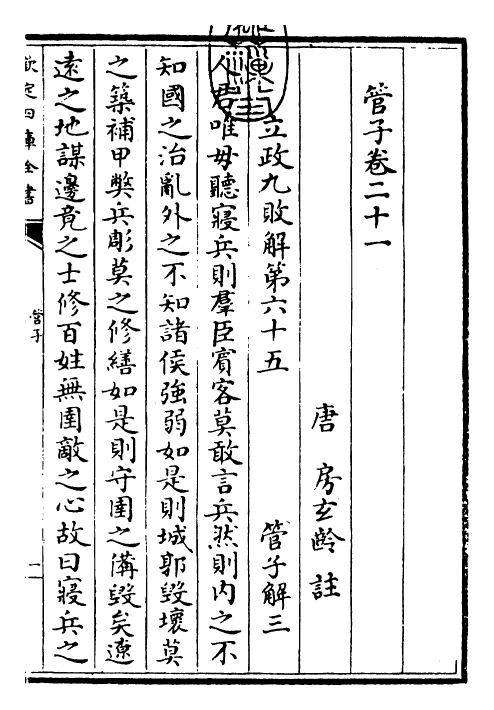 管子卷二十一
唐 房玄齡 註
立政九敗解第六十五 管子解三
人君唯毋聽寢兵則羣臣賓客莫敢言兵然則内之不
知國之治亂外之不知諸侯強弱如是則城郭毀壞莫
之築補甲獘兵彫莫之修繕如是則守圉之溝毀矣遼
遠之地謀邊竟之士修百姓無圉敵之心故曰寢兵之
欽定四庫全書
管子
一